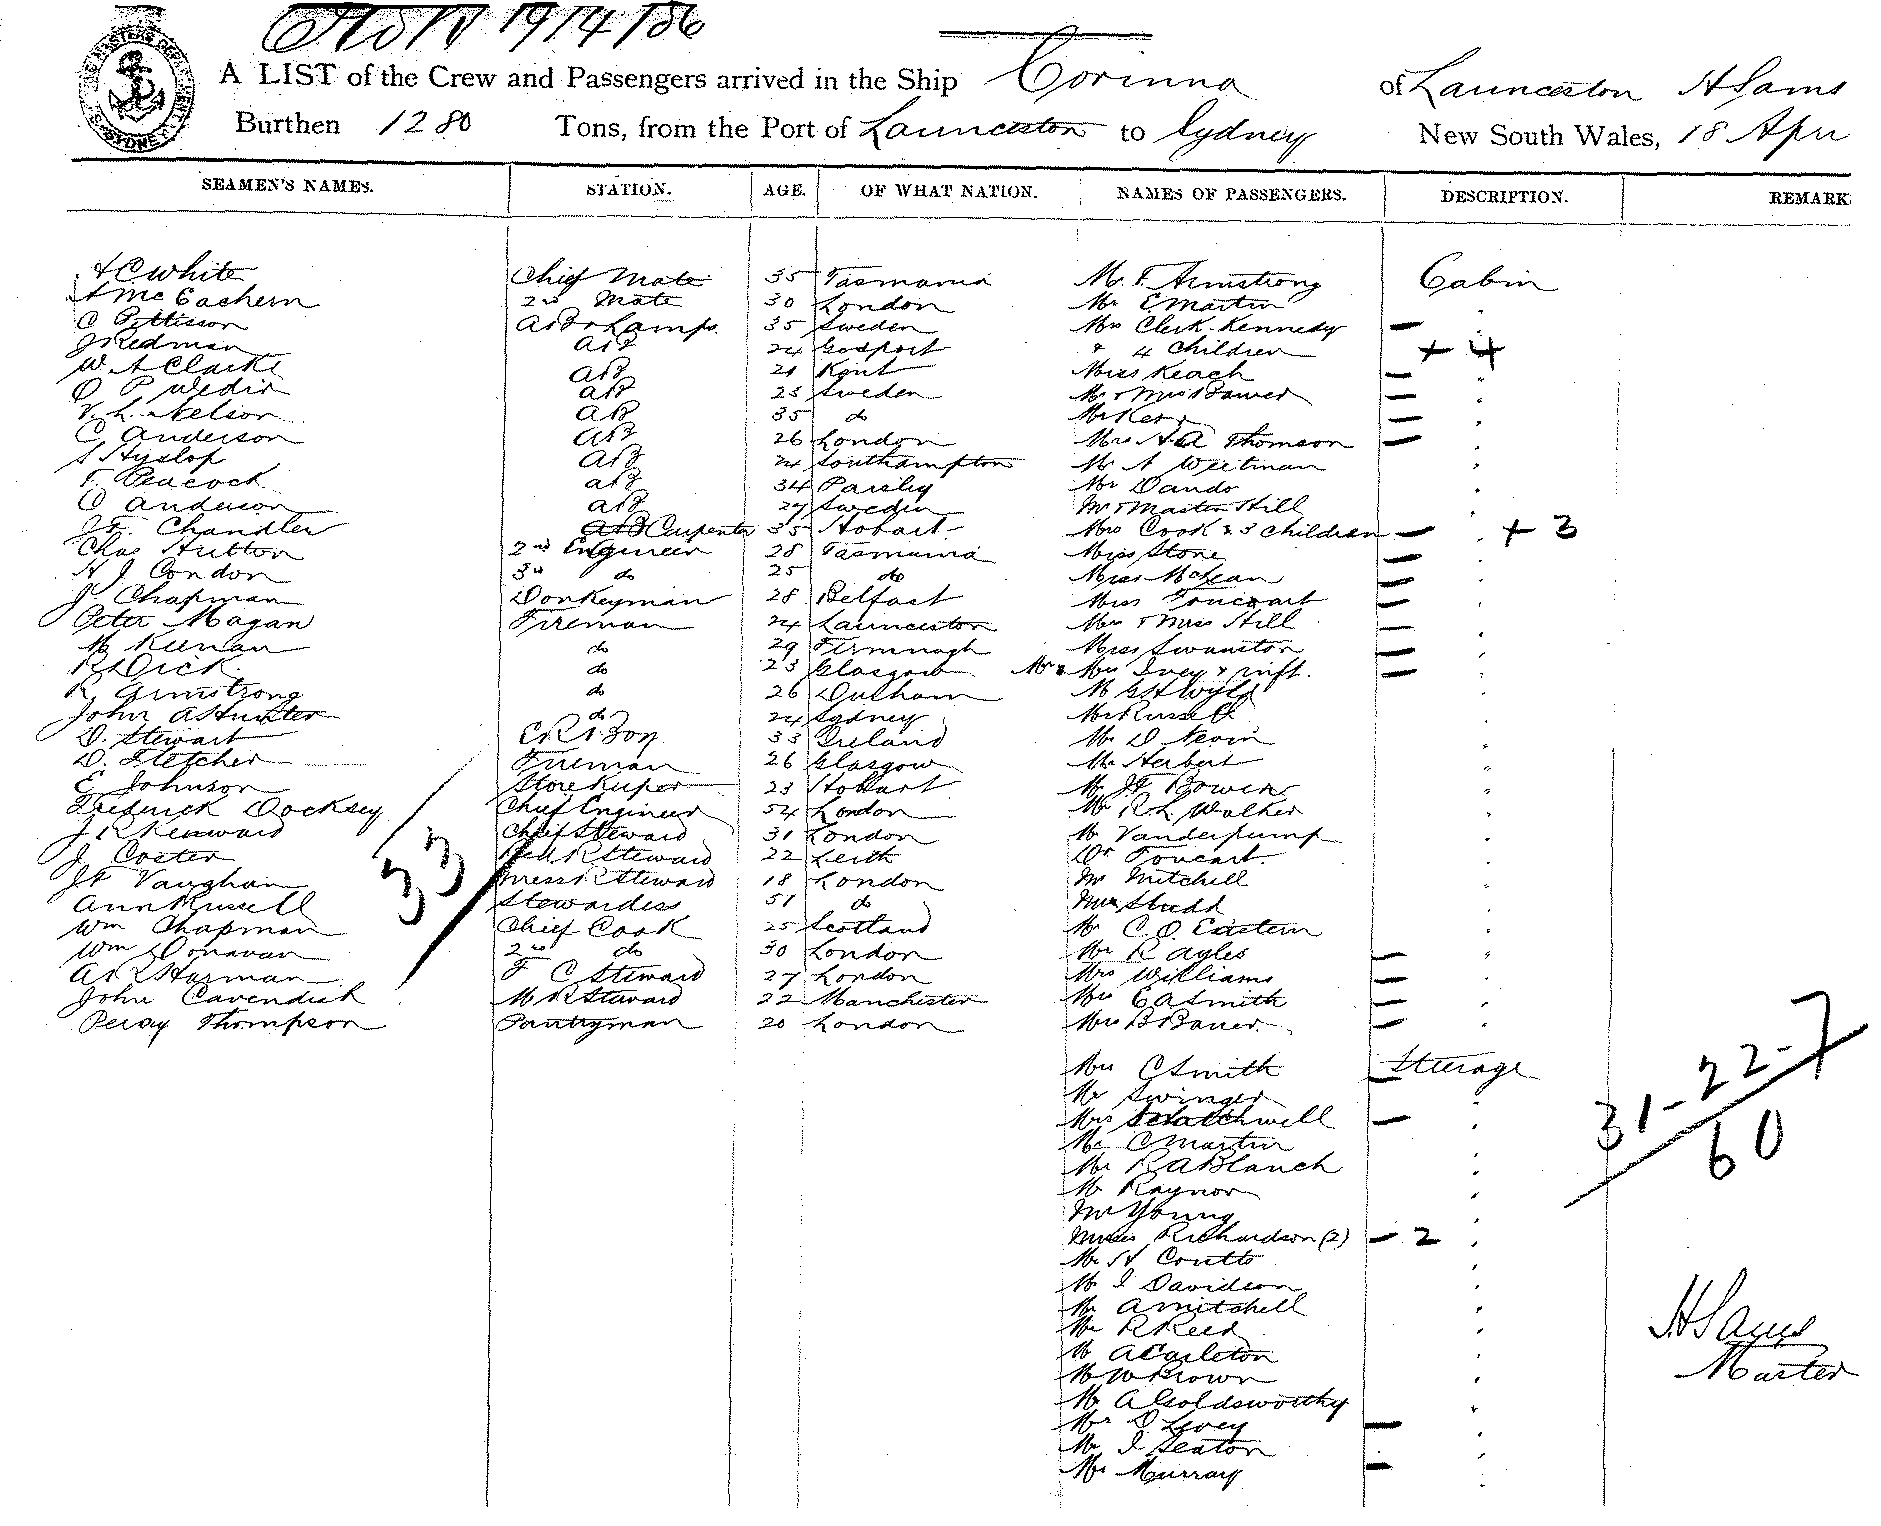 A LIST of the Crew and Passengers arrived in the Ship Corinna of Launceston H Sams
Burthen 1280 Tons, from the Port of Launceston to Sydney New South Wales, 18 Apri
SEAMEN'S NAMES. STATION. AGE. OF WHAT NATION. NAMES OF PASSENGERS. DESCRIPTION. REMARK
White Chief Mate 35 Tasmania Mr. F. Armstrong Cabin
A McEachern 2nd Mate 30 London Mr C Martin "
C Pettisson AB & Lamps 35 Sweden Mrs Clerk-Kennedy —
J Redman AB 24 Gosport & 4 Children + 4
W A Clarke AB 21 Kent Miss Keach — "
O P AB 25 Sweden Mr & Mrs Bower — "
V. L. Nelson AB 35 do Mr Kerr — "
C Anderson AB 26 London Mrs H A Thomson — "
S Hyslop AB 24 Southampton Mr A Weetman "
F. Peacock AB 34 Paisley Mr Dando "
O Anderson AB 29 Sweden Mr & Master Hill "
J F. Chandler AB Carpenter 35 Hobart Mrs Cook & 3 children — " + 3
Chas Hutton 2nd Engineer 28 Tasmania Miss Stone — "
H J Condon 3rd do 25 do Miss McLean — "
J Chapman Donkeyman 28 Belfast Miss Foucart — "
Peter Magan Fireman 24 Launceston Mrs & Miss Hill — "
M Keenan do 29 Fermnagh Miss Swanston — "
R Dick do 23 Glasgow Mr & Mrs Ivey & inft. — "
R. Armstrong do 26 Dulham M G H Wyld "
John A Hunter do 24 Sydney Mr Russell "
D. Stewart 33 Ireland Mr D Nevin "
D. Fletcher Fireman 26 Glasgow Mr Herbert "
E Johnson Storekeeper 23 Hobart Mr J F Bowen "
Frederick Docksey Chief Engineer 54 London Mr R L Walker "
J R Kenward Chief Steward 31 London Mr Vanderpump "
J Coster Steward 22 Leith Dr Foucart "
J F Vaughan Mess R Steward 18 London Mr Mitchell "
Ann Russell Stewardess 51 do Studd "
Wm Chapman Chief Cook 25 Scotland Mr C. O. Eastern "
Wm Donavan 2nd do 30 London Mr R Ayles — "
A R Harman F C Steward 27 London Mrs Williams — "
John Cavendish M R Steward 22 Manchester Mrs E A Smith — "
Percy Thompson Pantryman 20 London Mrs B Bauer — "
33
Mrs C Smith — Steerage
Mr Swinger "
Mrs Scratchwell — "
Mr C Martin "
Mr R A Blanch "
Mr Raynor "
Mr Young "
Misses Richardson (2) — 2 "
Mr H Coutts "
Mr J Davidson "
Mr A Mitchell "
Mr R Reed "
Mr A Carleton "
Mr W Brown "
Mr A Goldsworthy "
Mrs D Levey — "
Mr J Seaton "
Mrs Murray — "
31-22-7
60
H Sams
Master